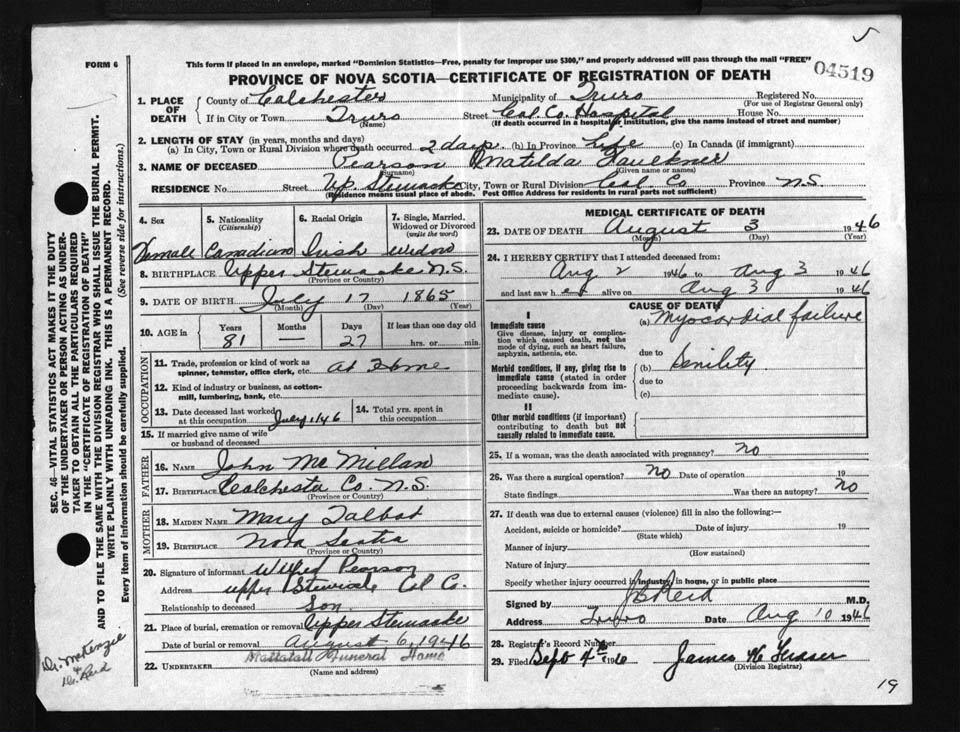 FORM 6
This form if placed in an envelope, marked "Dominion Statistics—Free, penalty for improper use $300," and properly addressed will pass through the mail "FREE"
PROVINCE OF NOVA SCOTIA—CERTIFICATE OF REGISTRATION OF DEATH
04519
1. PLACE OF DEATH
County of Colchester Municipality of Truro Registered No.
(For use of Registrar General only)
If in City or Town Truro Street Col. Co. Hospital House No.
(Name) (If death occurred in a hospital or institution, give the name instead of street and number)
2. LENGTH OF STAY (in years, months and days)
(a) In City, Town or Rural Division where death occurred 2 days (b) In Province life (c) In Canada (if immigrant)
3. NAME OF DECEASED Pearson Matilda Faulkner
(Surname) (Given name or names)
RESIDENCE No. Street Up. Stewiacke City, Town or Rural Division Col. Co Province N.S
(Residence means usual place of abode. Post Office Address for residents in rural parts not sufficient)
4. Sex
Female
5. Nationality
(Citizenship)
Canadian
6. Racial Origin
Irish
7. Single, Married, Widowed or Divorced
(write the word)
Widow
8. BIRTHPLACE Upper Stewiacke N.S.
(Province or Country)
9. DATE OF BIRTH July 17 1865
(Month) (Day) (Year)
10. AGE in Years Months Days If less than one day old
81 — 27 hrs. or min.
OCCUPATION
11. Trade, profession or kind of work as spinner, teamster, office clerk, etc. at Home
12. Kind of industry or business, as cotton-mill, lumbering, bank, etc.
13. Date deceased last worked at this occupation July 1/46
14. Total yrs. spent in this occupation
15. If married give name of wife or husband of deceased
FATHER
16. NAME John McMillan
17. BIRTHPLACE Colchester Co. N.S.
(Province or Country)
MOTHER
18. MAIDEN NAME Mary Talbot
19. BIRTHPLACE Nova Scotia
(Province or Country)
20. Signature of informant Pearson
Address Upper Stewiacke Col Co.
Relationship to deceased Son.
21. Place of burial, cremation or removal Upper Stewiacke
Date of burial or removal August 6, 1946
22. UNDERTAKER Mattatall Funeral Home
(Name and address)
MEDICAL CERTIFICATE OF DEATH
23. DATE OF DEATH August 3 1946
(Month) (Day) (Year)
24. I HEREBY CERTIFY that I attended deceased from:
Aug 2 1946 to Aug 3 1946
and last saw her alive on Aug 3 1946
CAUSE OF DEATH
I
Immediate cause
Give disease, injury or complication which caused death, not the mode of dying, such as heart failure, asphyxia, asthenia, etc.
(a) Myocardial failure
due to
Morbid conditions, if any, giving rise to immediate cause (stated in order proceeding backwards from immediate cause).
(b) Senility.
due to
(c)
II
Other morbid conditions (if important) contributing to death but not causally related to immediate cause.
25. If a woman, was the death associated with pregnancy? no
26. Was there a surgical operation? no Date of operation 19
State findings Was there an autopsy? no
27. If death was due to external causes (violence) fill in also the following:—
Accident, suicide or homicide? Date of injury 19
(State which)
Manner of injury
(How sustained)
Nature of injury
Specify whether injury occurred in industry, in home, or in public place
Signed by Reid M.D.
Address Truro Date Aug 10 1946
28. Registrar's Record Number
29. Filed Sept 4th James W Fraser
(Division Registrar)
19
SEC. 46—VITAL STATISTICS ACT MAKES IT THE DUTY
OF THE UNDERTAKER OR PERSON ACTING AS UNDER-
TAKER TO OBTAIN ALL THE PARTICULARS REQUIRED
IN THE "CERTIFICATE OF REGISTRATION OF DEATH"
AND TO FILE THE SAME WITH THE DIVISION REGISTRAR WHO SHALL ISSUE THE BURIAL PERMIT.
WRITE PLAINLY WITH UNFADING INK. THIS IS A PERMANENT RECORD.
Every item of information should be carefully supplied. (See reverse side for instructions.)
Dr. McKenzie
Dr. Reid